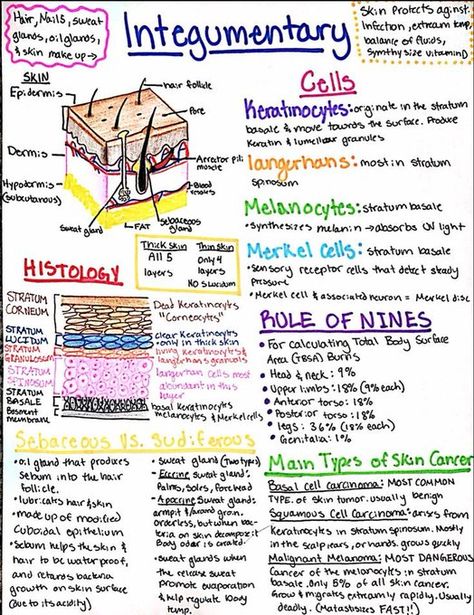 Hair, Nails, sweat
glands, oil glands,
& skin make up →
Integumentary
Skin Protects against
Infection, extream temp,
balance of fluids,
Synthysize vitamin D
SKIN
Epidermis
Dermis
Hypodermis
(subcutaneous)
hair follicle
Pore
Arrector pili
muscle
Blood
vessels
Sweat gland
FAT
Sebaceous
gland
Thick skin
All 5
layers
Thin skin
Only 4
layers
No Slucidum
Cells
Keratinocytes: originate in the stratum
basale & move towards the surface. Produce
Keratin & lumellar granules
Langerhans: most in stratum
spinosum
Melanocytes: stratum basale
• Synthesizes melanin → absorbs UV light
Merkel Cells: stratum basale
• Sensory receptor cells that detect steady
pressure
• Merkel cell & associated neuron = Merkel disc
HISTOLOGY
STRATUM
CORNEUM
STRATUM
LUCIDUM
STRATUM
GRANULOSUM
STRATUM
SPINOSUM
STRATUM
BASALE
Basment
membrane
Dead Keratinocyts
"Corneocyts"
clear Keratinocyts
-only in thick skin
living keratinocyts &
langerhans granuls
langerhan cells most
abundant in this
layer
basal Keratinocyts
melanocyts & Merkel cells
RULE OF NINES
• For calculating Total Body Surface
Area (TBSA) Burns
• Head & neck: 9%
• Upper limbs: 18% (9% each)
• Anterior torso: 18%
• Posterior torso: 18%
• Legs: 36% (18% each)
• Genitalia: 1%
Sebaceous Vs. Sudiferous
• oil gland that produces
Sebum into the hair
follicle.
• lubricates hair & skin
• made up of modified
Cuboidal epithelium
• Sebum helps the skin &
hair to be water proof,
and retards bacteria
growth on skin surface
(Due to its acidity)
• Sweat gland (Two types)
• Eccrine sweat gland:
Palms, Soles, forehead
• Apocrine Sweat glands:
armpit & around groin.
orderless, but when bac-
teria on skin decompose it
Body odor is created.
• Sweat glands when
the release sweat
promote evaporation
& help regulate body
temp.
Main Types of Skin Cancer
Basal cell carcinoma: MOST COMMON
TYPE of skin tumor. usually benign
Squamous Cell Carcinoma: arises from
Keratinocytes in stratum spinosum. Mostly
in the scalp, ears, or hands. grows quickly
Malignant Melanoma: MOST DANGEROUS
Cancer of the melanocytes in stratum
basale. Only 5% of all skin cancer.
Grow & migrates extreamly rapidly. Usually
deadly. (Matasisizes FAST!!)